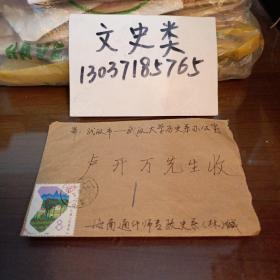 文史类
13037185765
武汉市—武汉大学历史系办公室
卢开万先生收
海南通什师专政史系(林)缄
8